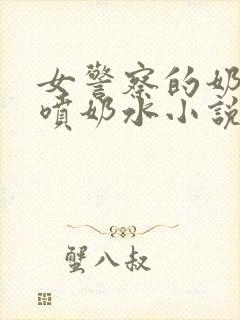 女警察的奶
喷奶水小說
蟹八叔